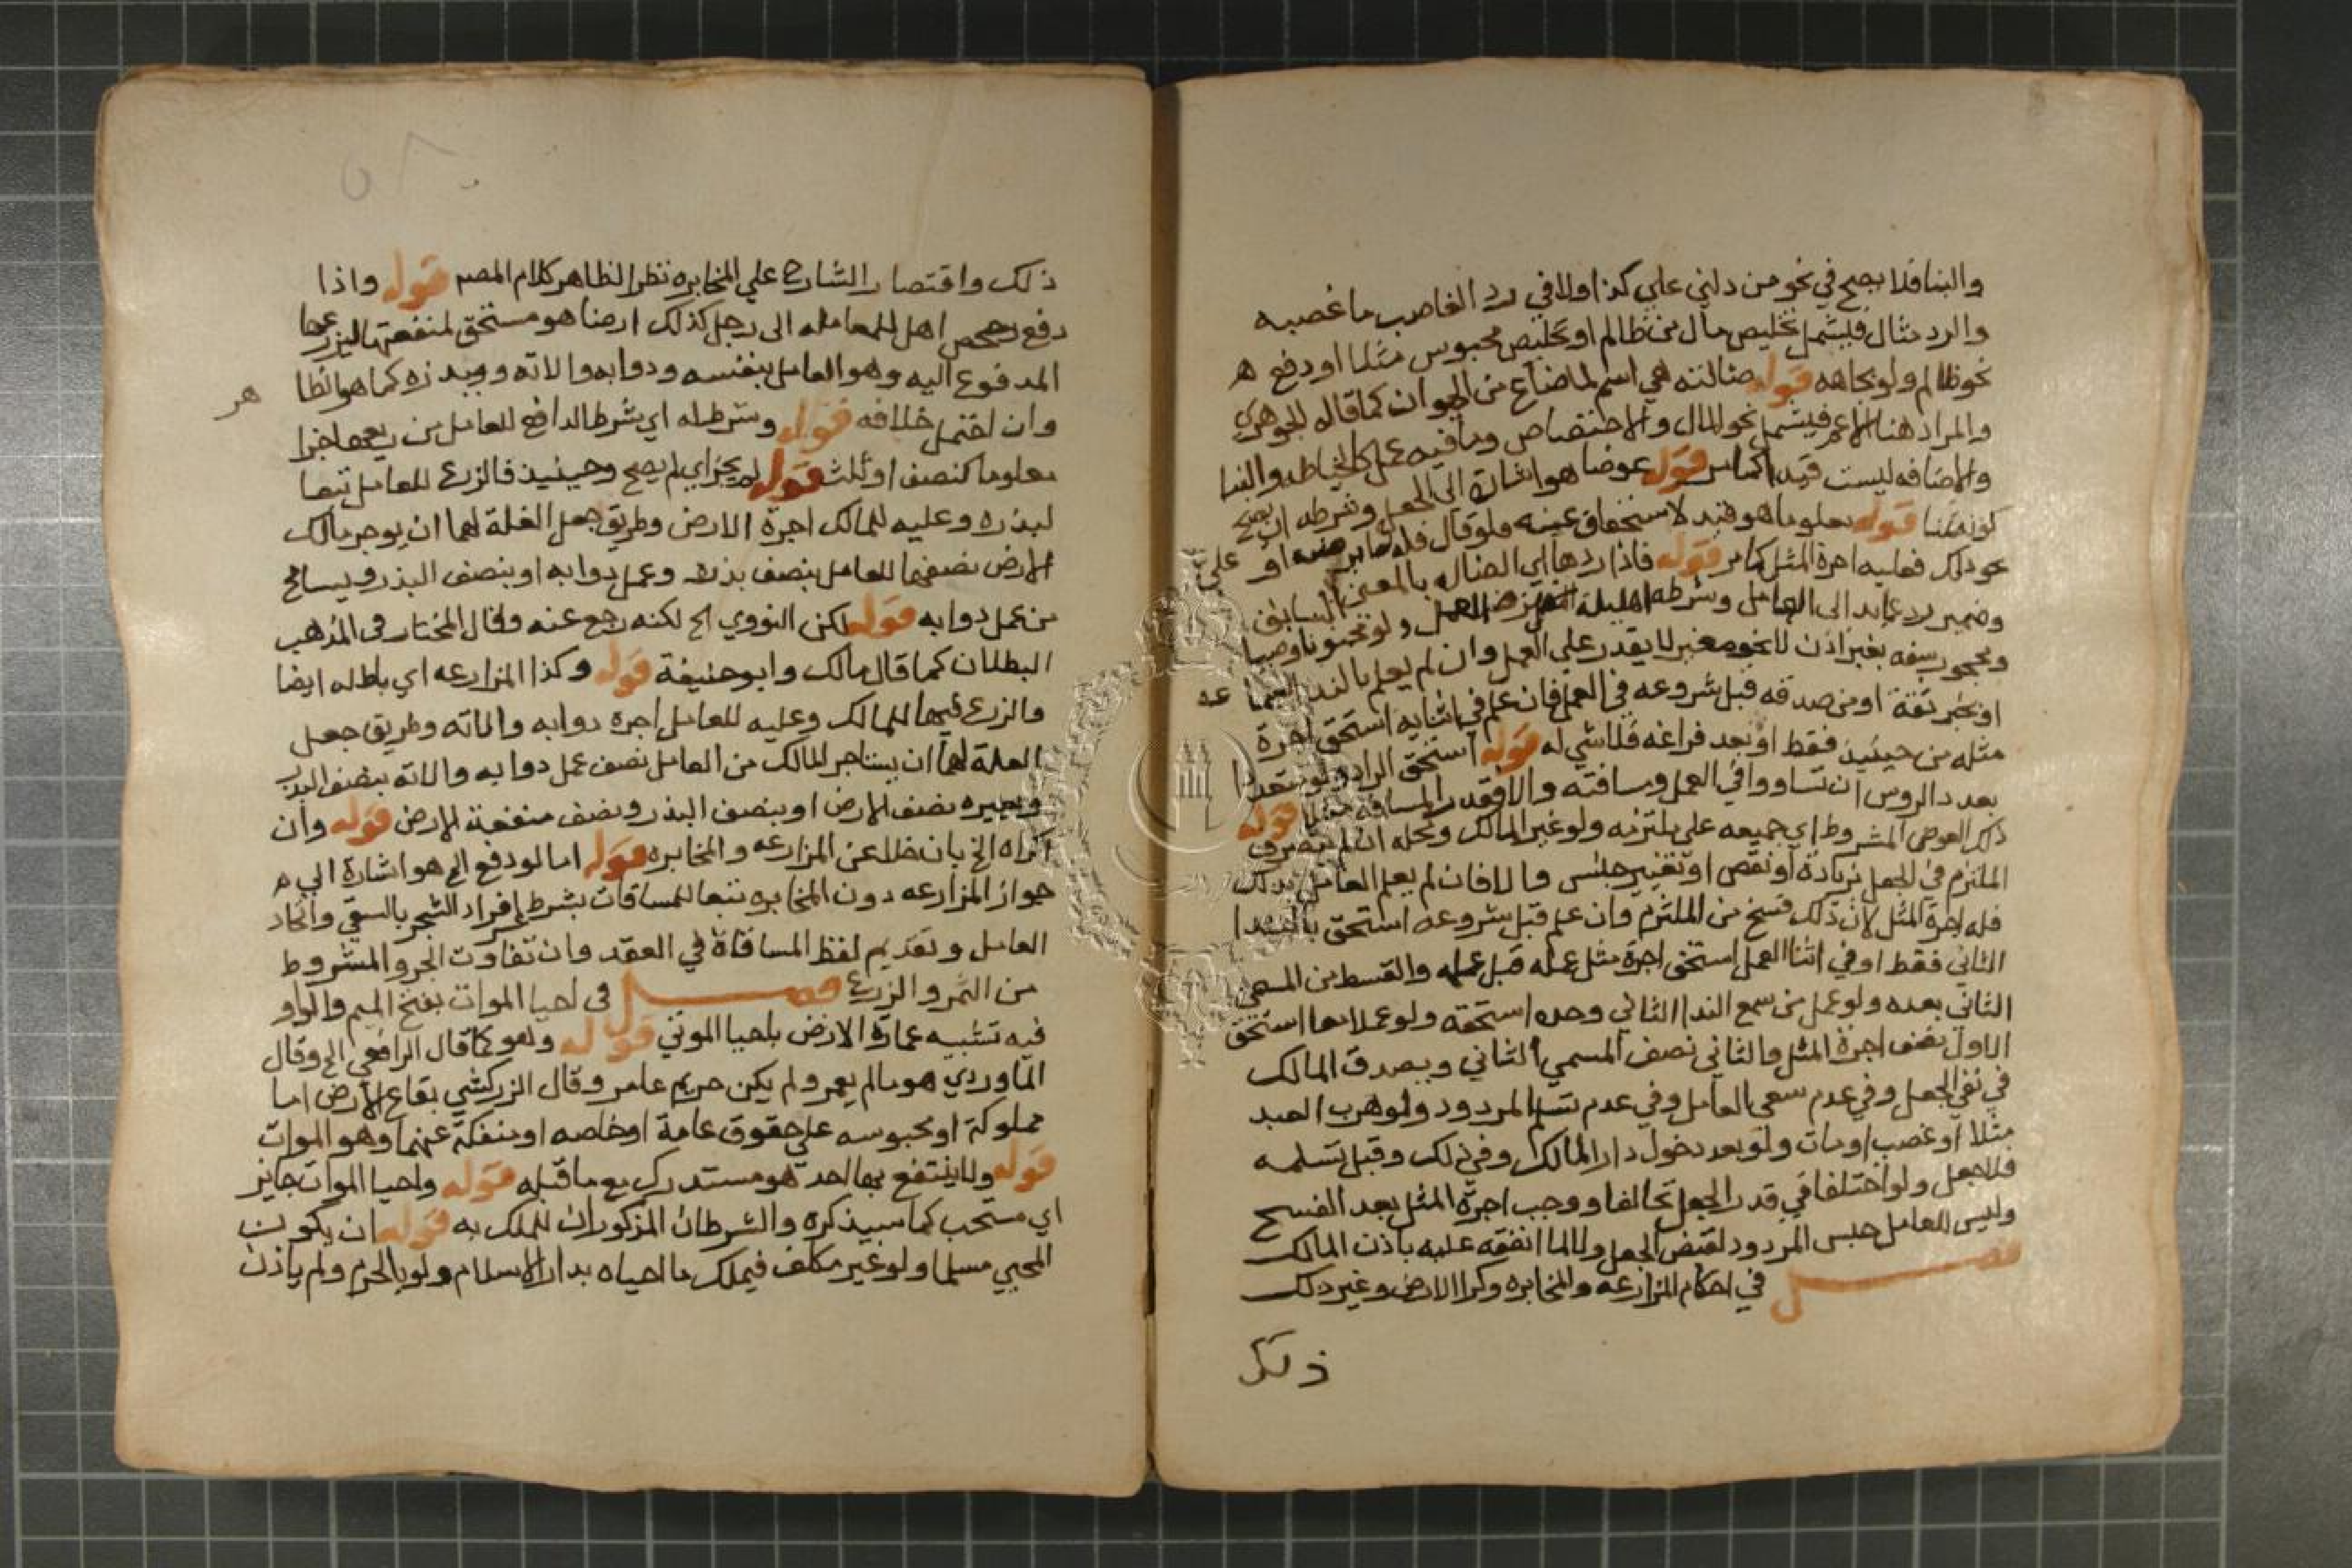 والبنا فلا يصح في نحو من دلني علي كذا ولا في رد الغاصب ما غصبه
والرد مثال فيشمل تخليص مال من ظالم او تخليص محبوس مثلا او دفع ه
نحو ظالم ولو بجاهه قوله ضالته هي اسم لما ضاع من الحيوان كما قاله الجوهري
والمراد هنا الاعم فيشمل نحو المال والاختصاص وما فيه عمل كالخياطه والبنا
والاضافه ليست قيدا كما مر قوله عوضا هو اشارة الى الجعل وشرطه ان يصح
كونه ثمنا قوله معلوما هو قيد لاستحقاق عينه فلو قال فله ما يرضيه او
نحو ذلك فعليه اجرة المثل كما مر قوله فاذا ردها اي الضاله بالمعنى السابق علي
وضمير رد عايد الى العامل وشرطه اهليلة العمل ولو مجنونا وصبيا
ومحجور سفه بغير اذن لا نحو صغير لا يقدر على العمل وان لم يعلم بالندا
او بخبر ثقة او من صدقه قبل شروعه في العمل فان علم في اثنايه استحق اجرة
مثله من حينيذ فقط او بعد فراغه فلا شي له قوله استحق الراد ولو متعددا
بعدد الروس ان تساووا في العمل ومسافته والا فبقدر المسافه مثلا قوله
ذلك العوض المشروط اي جميعه على ملتزمه ولو غير المالك ومحله ان لم يتصرف
الملتزم في الجعل بزيادة او نقص او تغيير جنس والا فان لم يعلم العامل بذلك
فله اجرة المثل لان ذلك فسخ من الملتزم وان علم قبل شروعه استحق بالندا
الثاني فقط او في اثنا العمل استحق اجرة مثل عمله قبل عمله والقسط من المسمي
الثاني بعده ولو عمل من سمع الندا الثاني وحده استحقه ولو عملا معا استحق
الاول نصف اجرة المثل والثاني نصف المسمي الثاني ويصدق المالك
في نفي الجعل وفي عدم سعي العامل وفي عدم تسلم المردود ولو هرب العبد
مثلا او غصب او مات ولو بعد دخول دار المالك وفي ذلك وقبل تسلمه
فلا جعل ولو اختلفا في قدر الجعل تحالفا ووجب اجرة المثل بعد الفسخ
وليس للعامل حبس المردود لقبض الجعل ولا لما انفقه عليه باذن المالك
فصل في احكام المزارعه والمخابره وكرا الارض وغير ذلك
ذلك
ذلك واقتصار الشارح علي المخابره نظرا لظاهر كلام المصر قوله واذا
دفع شخص اهل للمعامله الى رجل كذلك ارضا هو مستحق لمنفعتها ليزرعها
المدفوع اليه وهو العامل بنفسه ودوابه والاته وببذره كما هو الظا هر
وان احتمل خلافه قوله وشرط له اي شرط الدافع للعامل من ريعها جزا
معلوما كنصف او ثلث قوله لم يجز اي لم يصح وحينيذ فالزرع للعامل تبعا
لبذره وعليه للمالك اجرة الارض وطريق جعل الغلة لهما ان يوجر مالك
الارض نصفها للعامل بنصف بذره وعمل دوابه او بنصف البذر ويسامح
من عمل دوابه قوله لكن النووي الخ لكنه رجع عنه وقال المختار في المذهب
البطلان كما قال مالك وابو حنيفة قوله وكذا المزارعه اي باطله ايضا
والزرع فيها للمالك وعليه للعامل اجرة دوابه والاته وطريق جعل
الغلة لهما ان يستاجر المالك من العامل نصف عمل دوابه والاته بنصف البذر
ويعيره نصف الارض او بنصف البذر ونصف منفعة الارض قوله وان
اكراه الخ بان خلا عن المزارعه والمخابره قوله اما لو دفع الخ هو اشارة الي ه
جواز المزارعه دون المخابره تبعا للمساقات بشرط عسر افراد الشجر بالسقي واتحاد
العامل وتقديم لفظ المساقاة في العقد وان تفاوت الجزو المشروط
من الثمر والزرع فصل في احيا الموات بفتح الميم والواو
فيه تشبيه عمارة الارض باحيا الموتي قوله وهو كما قال الرافعي الخ وقال
الماوردي هو ما لم يعمر ولم يكن حريم عامر وقال الزركشي بقاع الارض اما
مملوكة او محبوسه علي حقوق عامة او خاصه او منفكة عنهما وهو الموات
قوله ولا ينتفع بها احد هو مستدرك مع ما قبله قوله واحيا الموات جايز
اي مستحب كما سيذكره والشرطان المذكوران للملك به قوله ان يكون
المحيي مسلما ولو غير مكلف فيملك ما احياه بدار الاسلام ولو بالحرم ولم ياذن